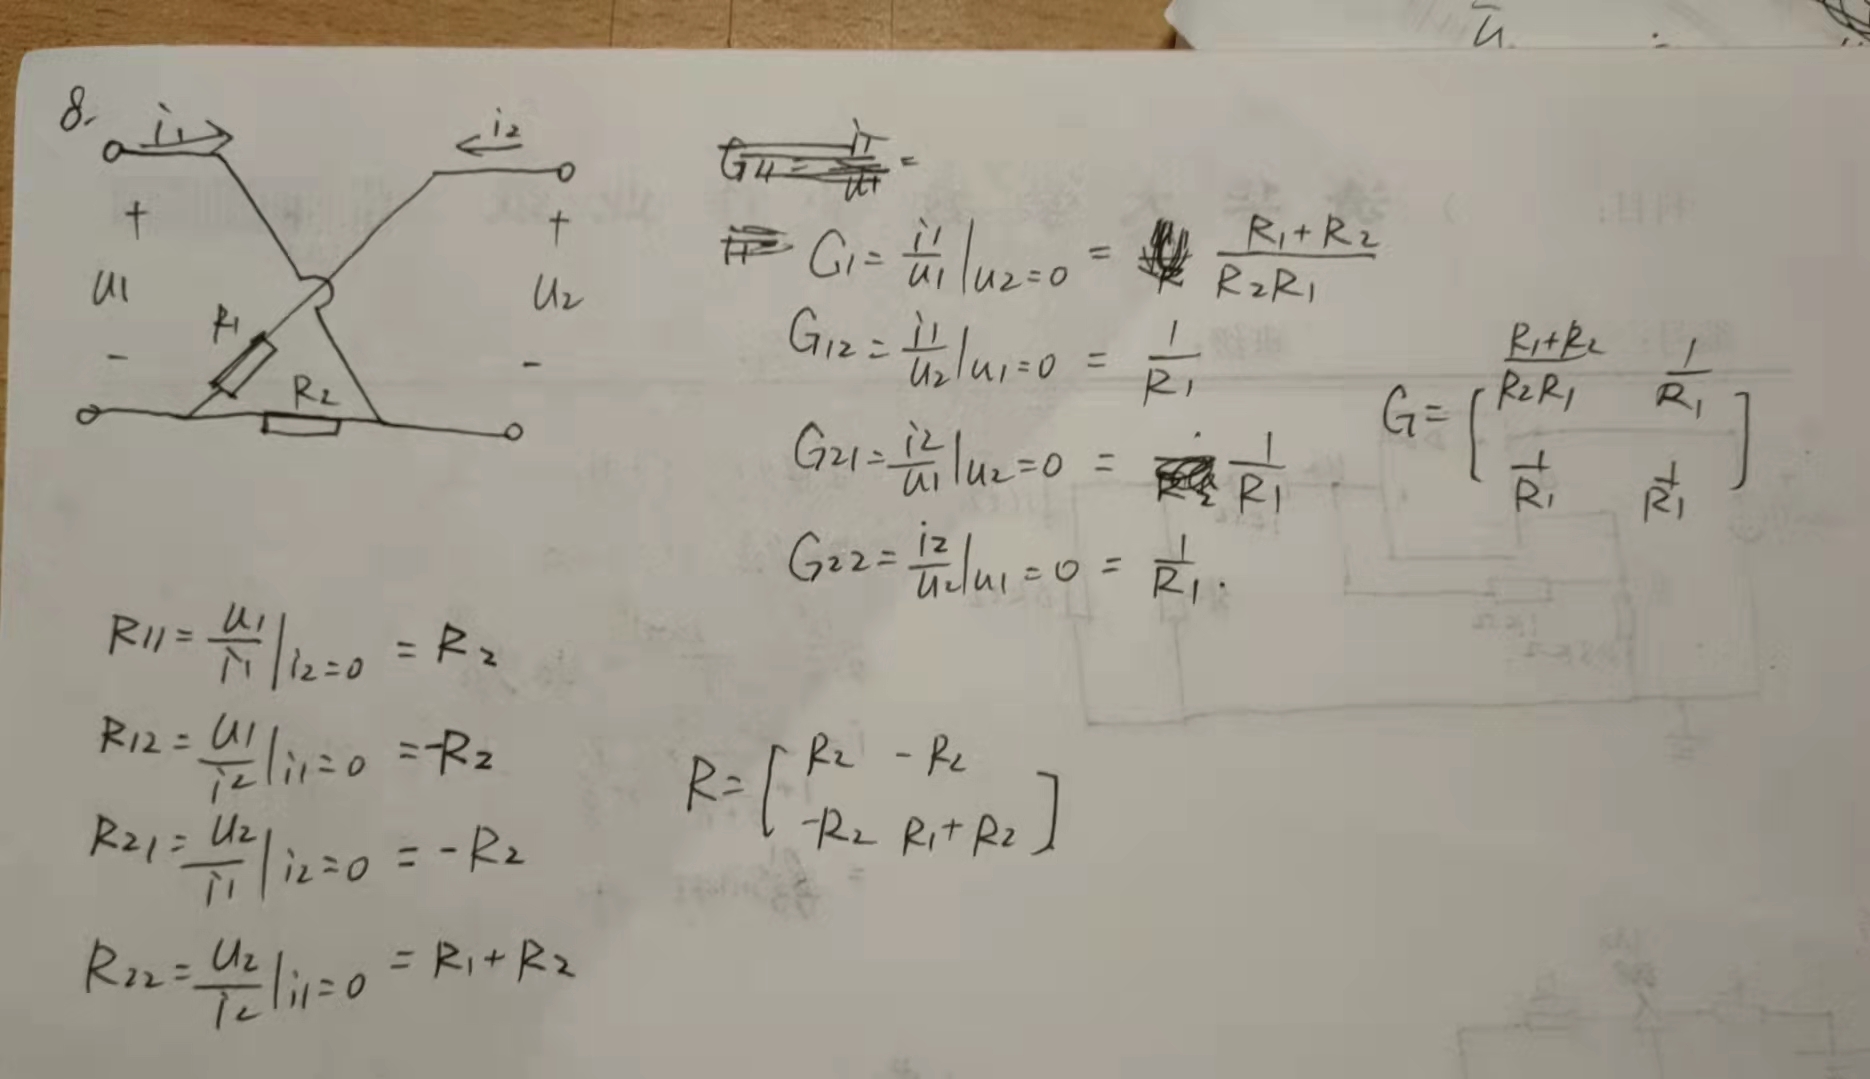 8.
i1
i2
+
+
u1
u2
R1
-
R2
-
G1 = i1/u1 | u2=0 = (R1+R2)/(R2R1)
G12 = i1/u2 | u1=0 = 1/R1
G21 = i2/u1 | u2=0 = 1/R1
G22 = i2/u2 | u1=0 = 1/R1.
G = [ (R1+R2)/(R2R1) 1/R1
1/R1 1/R1 ]
R11 = u1/i1 | i2=0 = R2
R12 = u1/i2 | i1=0 = -R2
R21 = u2/i1 | i2=0 = -R2
R22 = u2/i2 | i1=0 = R1+R2
R = [ R2 -R2
-R2 R1+R2 ]